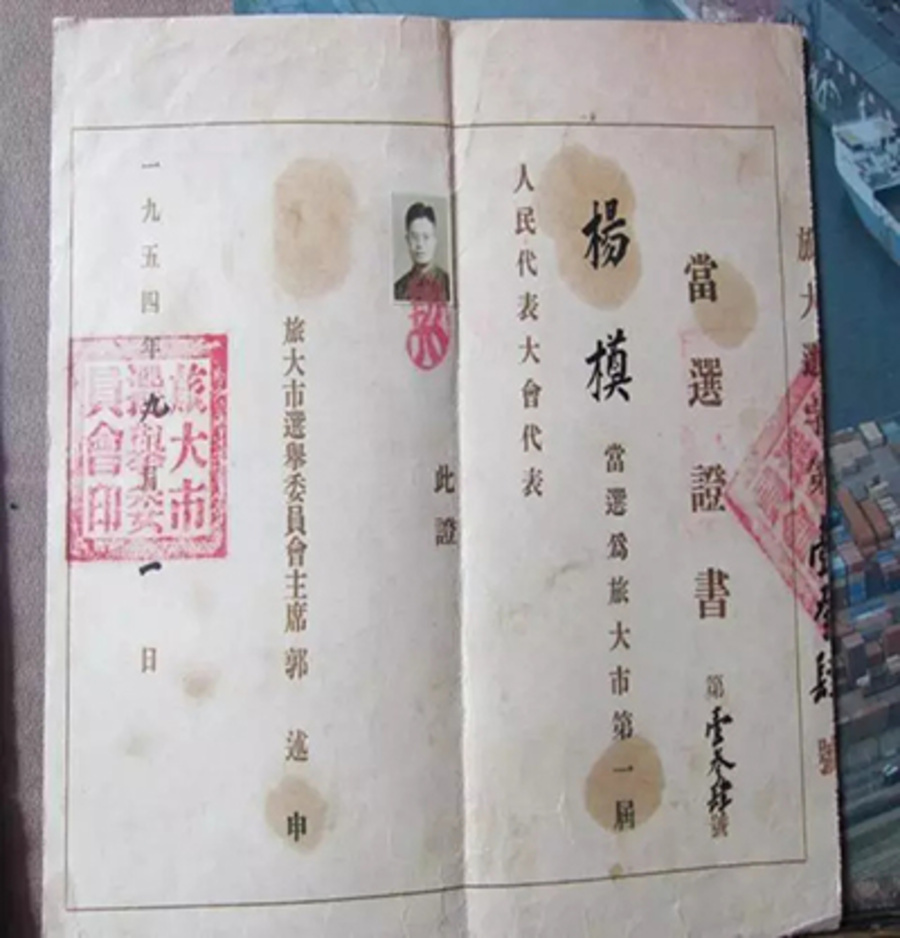 旅大選字第壹叁肆號
當選證書
第壹叁肆號
楊模當選為旅大市第一屆
人民代表大會代表
此證
旅大市選舉委員會主席郭述申
一九五四年九月一日
旅大市選舉委員會印